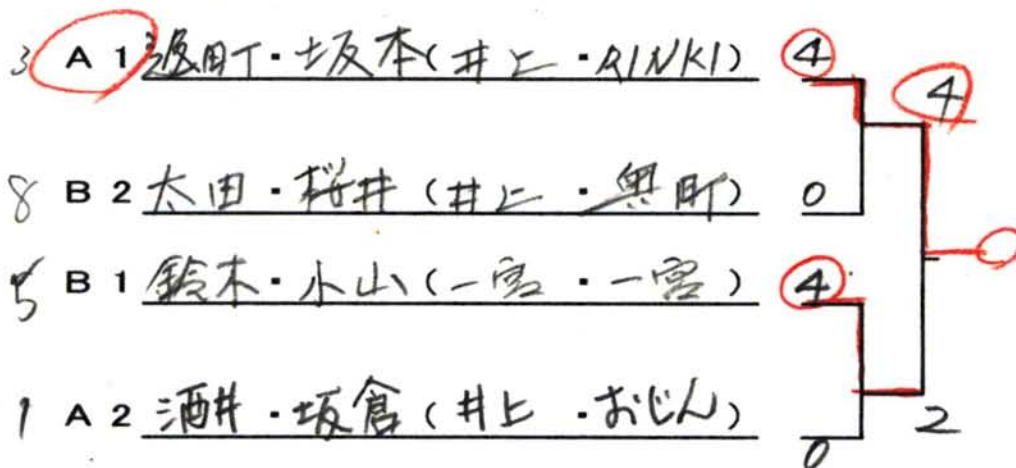 3 A1 辺町・坂本(井上・RINKI) 4 4
8 B2 太田・桜井(井上・奥町) 0
5 B1 鈴木・小山(一宮・一宮) 4
1 A2 酒井・坂倉(井上・おじん) 0 2